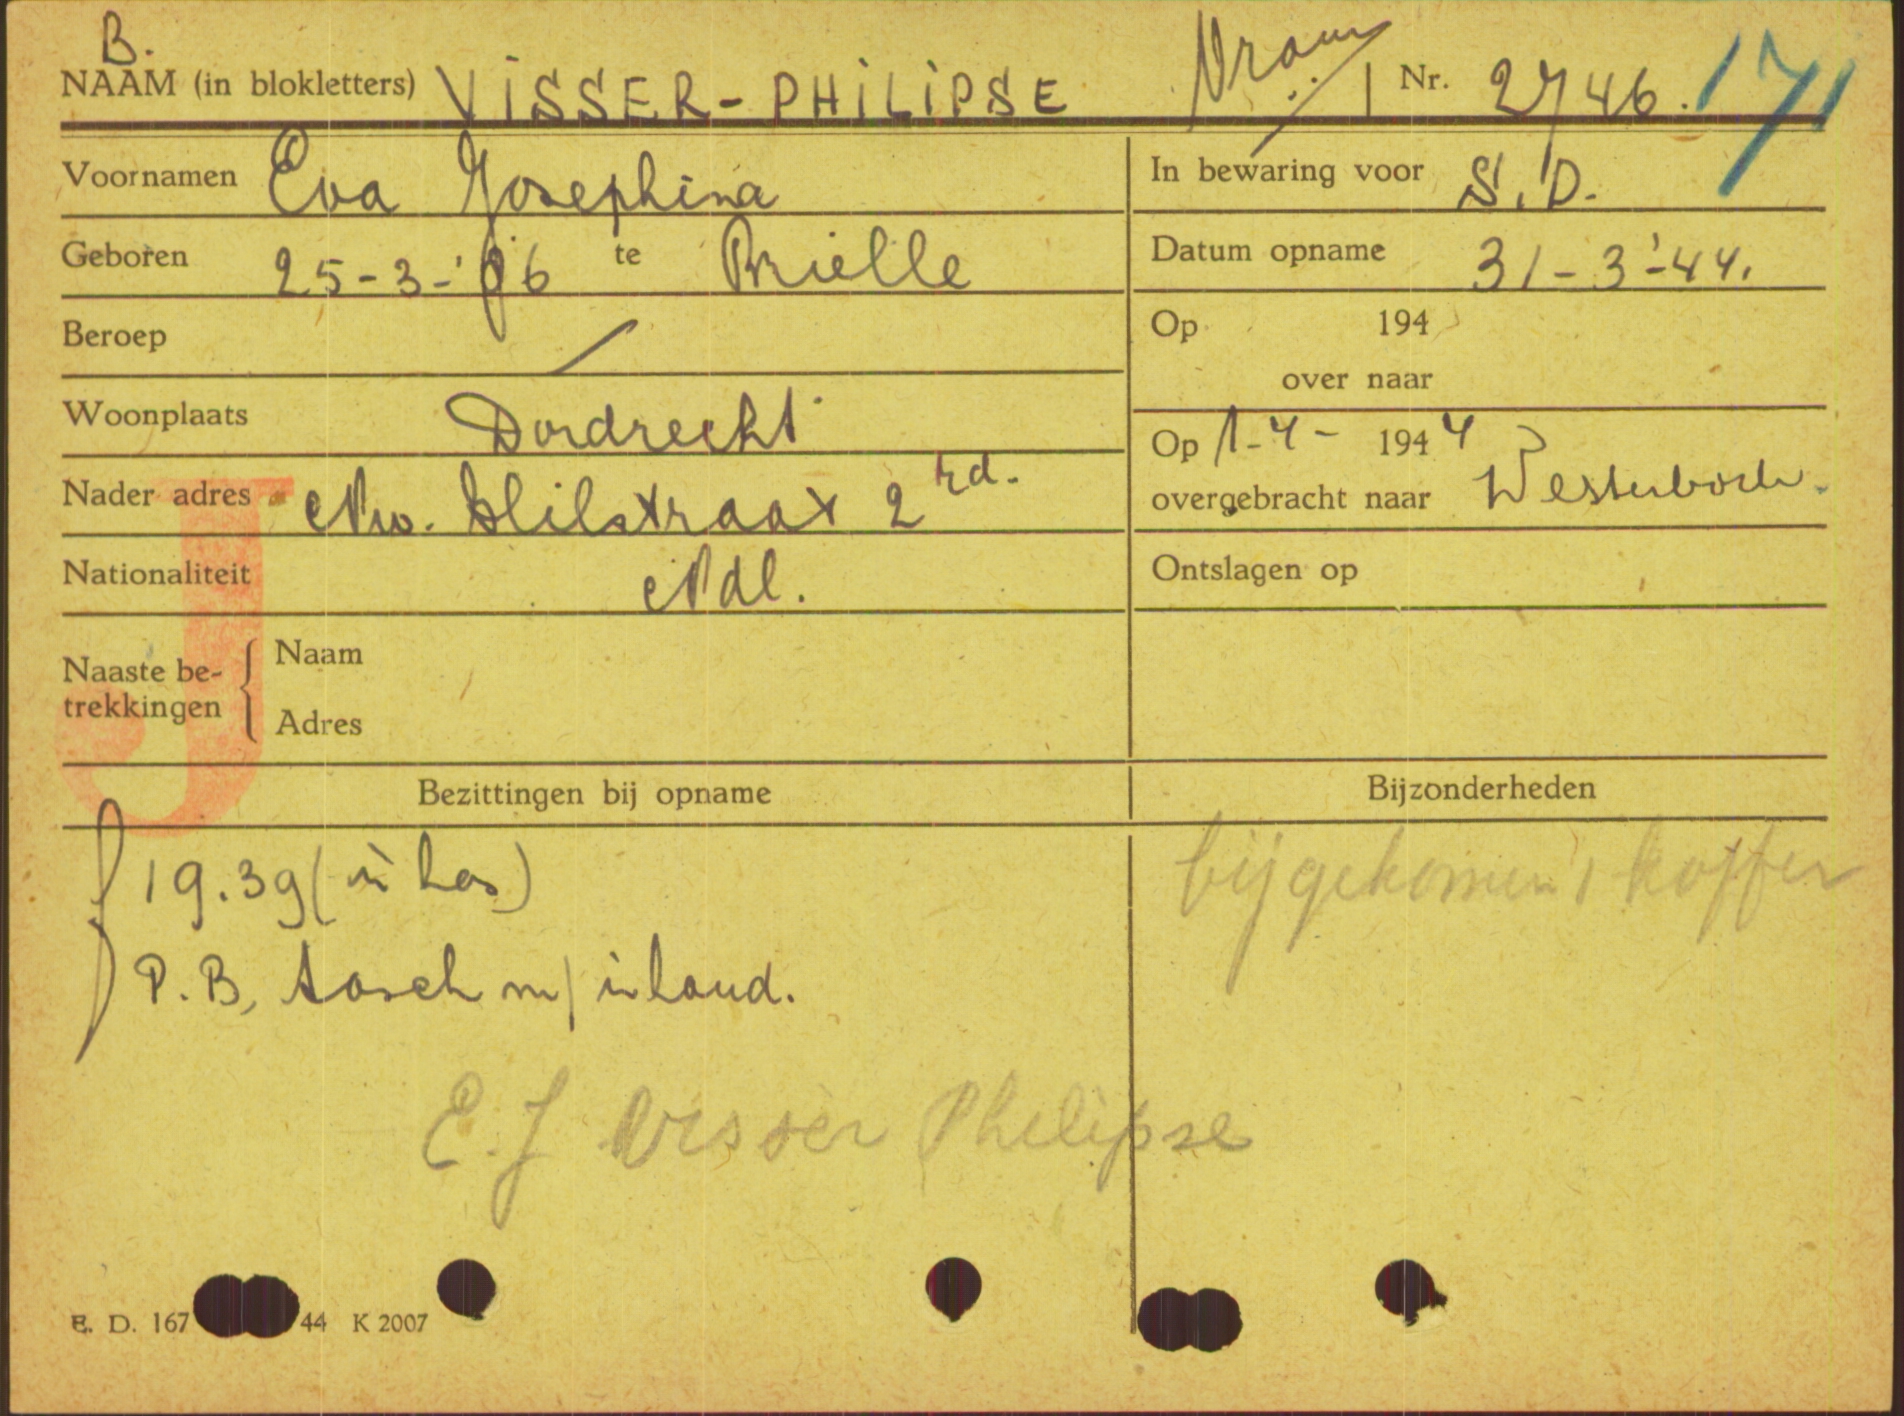 B.
NAAM (in blokletters) VISSER-PHILIPSE Vrouw Nr. 2746. 171
Voornamen Eva Josephina
Geboren 25-3-'06 te Brielle
Beroep /
Woonplaats Dordrecht
Nader adres Nw. Hilstraat 2 rd.
Nationaliteit Ndl.
Naaste be-
trekkingen
Naam
Adres
J
In bewaring voor S.D.
Datum opname 31-3-'44.
Op 194
over naar
Op 1-4- 1944
overgebracht naar Westerbork.
Ontslagen op
Bezittingen bij opname
19.39 (in kas)
P.B, tasch m/ inhoud.
E.J Visser Philipse
Bijzonderheden
bijgekomen 1 koffer
E. D. 167 44 K 2007